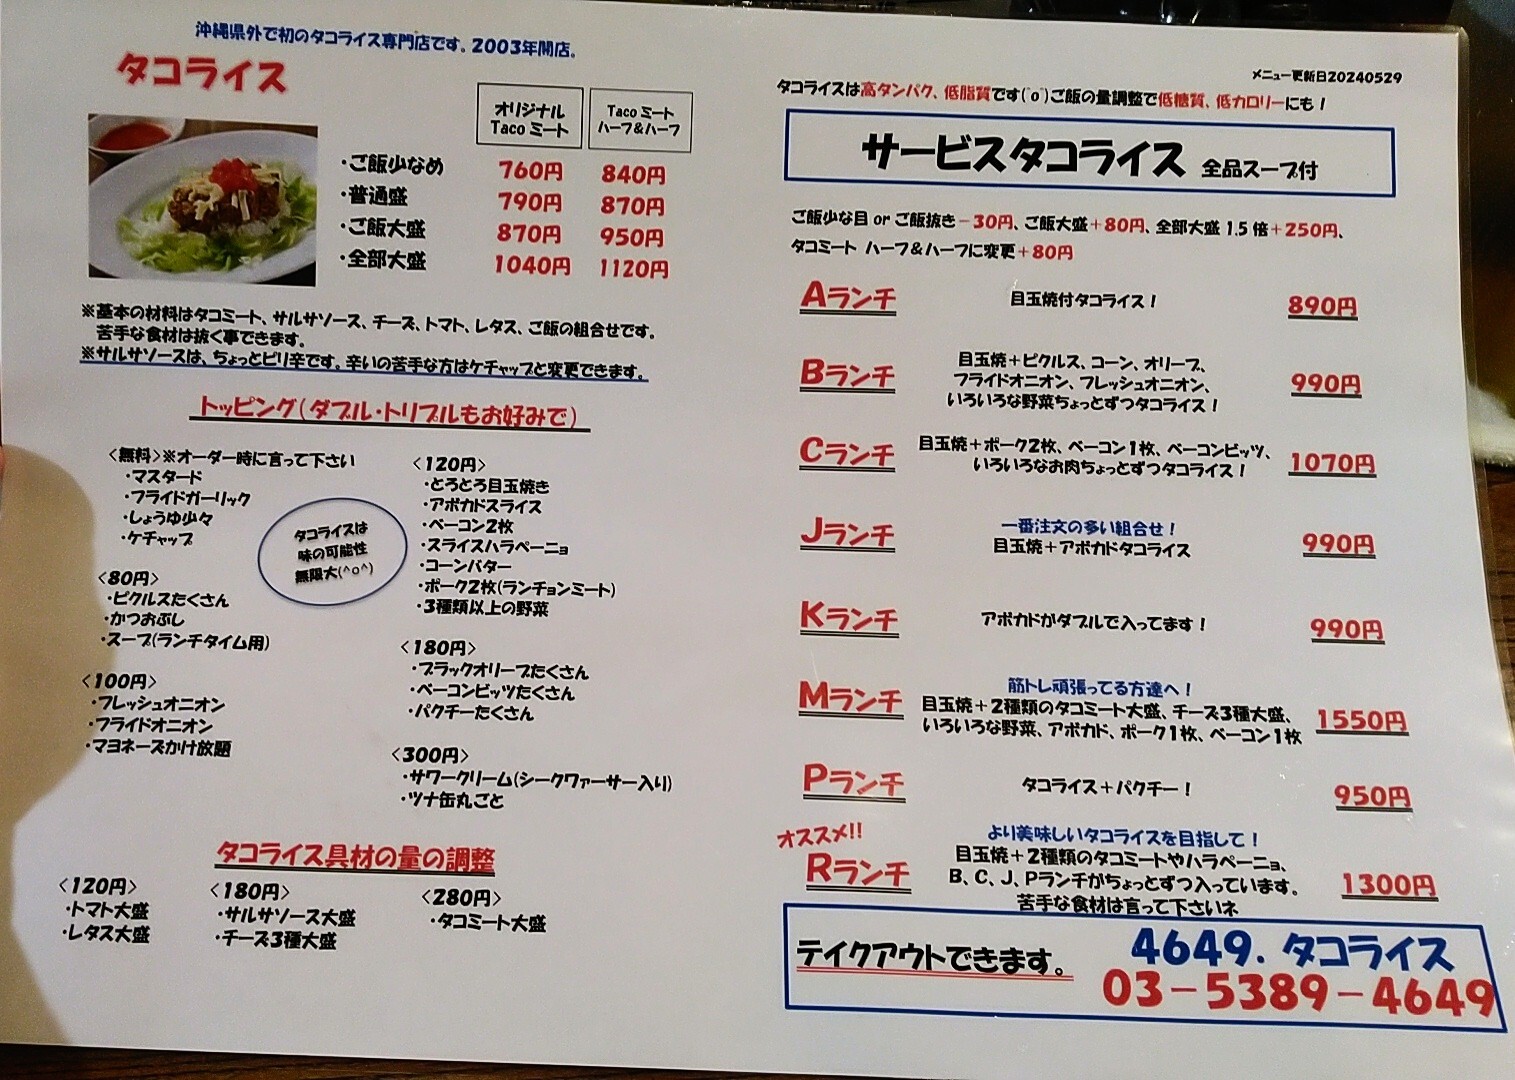 沖縄県外で初のタコライス専門店です。2003年開店。
タコライス
オリジナル
Tacoミート
Tacoミート
ハーフ&ハーフ
・ご飯少なめ 760円 840円
・普通盛 790円 870円
・ご飯大盛 870円 950円
・全部大盛 1040円 1120円
※基本の材料はタコミート、サルサソース、チーズ、トマト、レタス、ご飯の組合せです。
苦手な食材は抜く事できます。
※サルサソースは、ちょっとピリ辛です。辛いの苦手な方はケチャップと変更できます。
トッピング(ダブル・トリプルもお好みで)
<無料>※オーダー時に言って下さい
・マスタード
・フライドガーリック
・しょうゆ少々
・ケチャップ
タコライスは
味の可能性
無限大(^o^)
<80円>
・ピクルスたくさん
・かつおぶし
・スープ(ランチタイム用)
<100円>
・フレッシュオニオン
・フライドオニオン
・マヨネーズかけ放題
<120円>
・とろとろ目玉焼き
・アボカドスライス
・ベーコン2枚
・スライスハラペーニョ
・コーンバター
・ポーク2枚(ランチョンミート)
・3種類以上の野菜
<180円>
・ブラックオリーブたくさん
・ベーコンビッツたくさん
・パクチーたくさん
<300円>
・サワークリーム(シークワァーサー入り)
・ツナ缶丸ごと
タコライス具材の量の調整
<120円>
・トマト大盛
・レタス大盛
<180円>
・サルサソース大盛
・チーズ3種大盛
<280円>
・タコミート大盛
メニュー更新日20240529
タコライスは高タンパク、低脂質です(^o^)ご飯の量調整で低糖質、低カロリーにも!
サービスタコライス 全品スープ付
ご飯少な目 or ご飯抜き-30円、ご飯大盛+80円、全部大盛1.5倍+250円、
タコミート ハーフ&ハーフに変更+80円
Aランチ 目玉焼付タコライス! 890円
Bランチ 目玉焼+ピクルス、コーン、オリーブ、
フライドオニオン、フレッシュオニオン、 990円
いろいろな野菜ちょっとずつタコライス!
Cランチ 目玉焼+ポーク2枚、ベーコン1枚、ベーコンビッツ、
いろいろなお肉ちょっとずつタコライス! 1070円
一番注文の多い組合せ!
Jランチ 目玉焼+アボカドタコライス 990円
Kランチ アボカドがダブルで入ってます! 990円
筋トレ頑張ってる方達へ!
Mランチ 目玉焼+2種類のタコミート大盛、チーズ3種大盛、 1550円
いろいろな野菜、アボカド、ポーク1枚、ベーコン1枚
Pランチ タコライス+パクチー! 950円
オススメ!!
より美味しいタコライスを目指して!
Rランチ 目玉焼+2種類のタコミートやハラペーニョ、
B、C、J、Pランチがちょっとずつ入っています。 1300円
苦手な食材は言って下さいネ
テイクアウトできます。
4649. タコライス
03-5389-4649